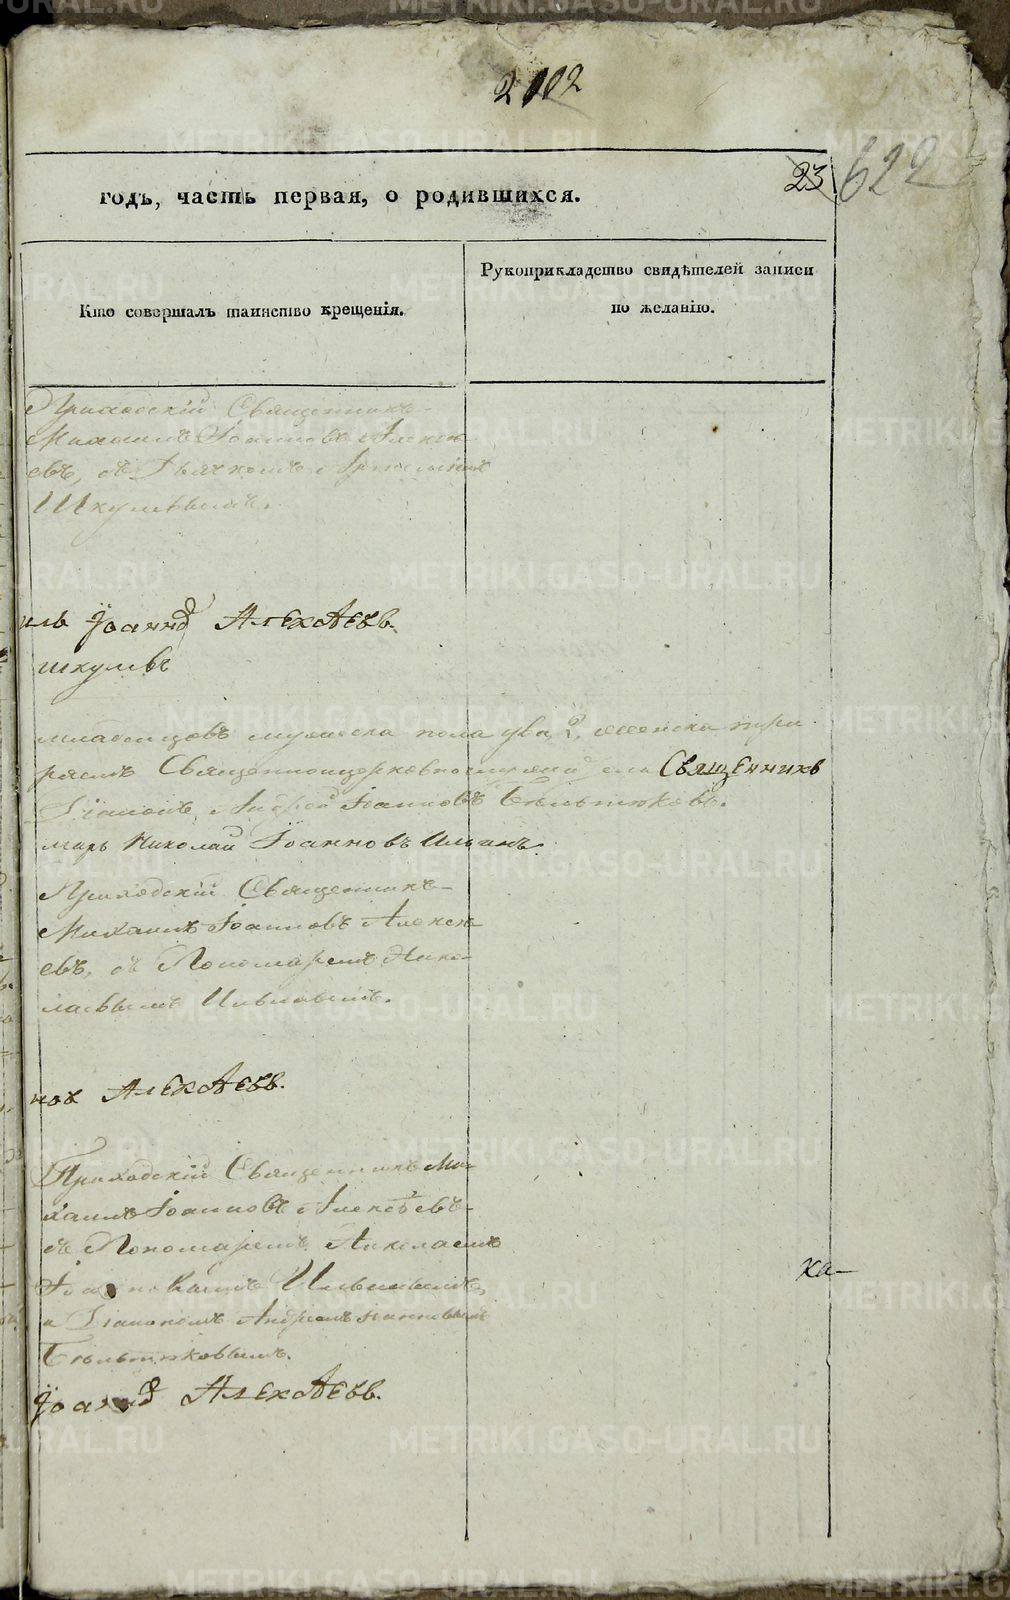 2112
23 622
годъ, часть первая, о родившихся.
Кто совершалъ таинство крещенія.
Рукоприкладство свидѣтелей записи
по желанію.
Приходскій Священникъ
Михаилъ Іоанновъ Алексѣ
евъ, съ Дьячкомъ
Шкулевымъ.
илъ Іоаннъ Алексѣевъ.
шкулевъ
младенцовъ мужеска пола два, 2, женска три
Священноцерковнослужи Священникъ
Діаконъ Андрей Іоанновъ Бѣльтюковъ.
марь Николай Іоанновъ Ильинъ.
Приходскій Священникъ
Михаилъ Іоанновъ Алексѣ
евъ, съ Пономаремъ Нико
лаевымъ
нов Алексѣевъ.
Приходскій Священникъ Ми-
хаилъ Іоанновъ Алексѣевъ
съ Пономаремъ Николаемъ
Іоанновымъ Ильинымъ,
и Діакономъ Андреемъ Іанновымъ
Бѣльтюковымъ.
ха-
Іоаннъ Алексѣевъ.
METRIKI.GASO-URAL.RU